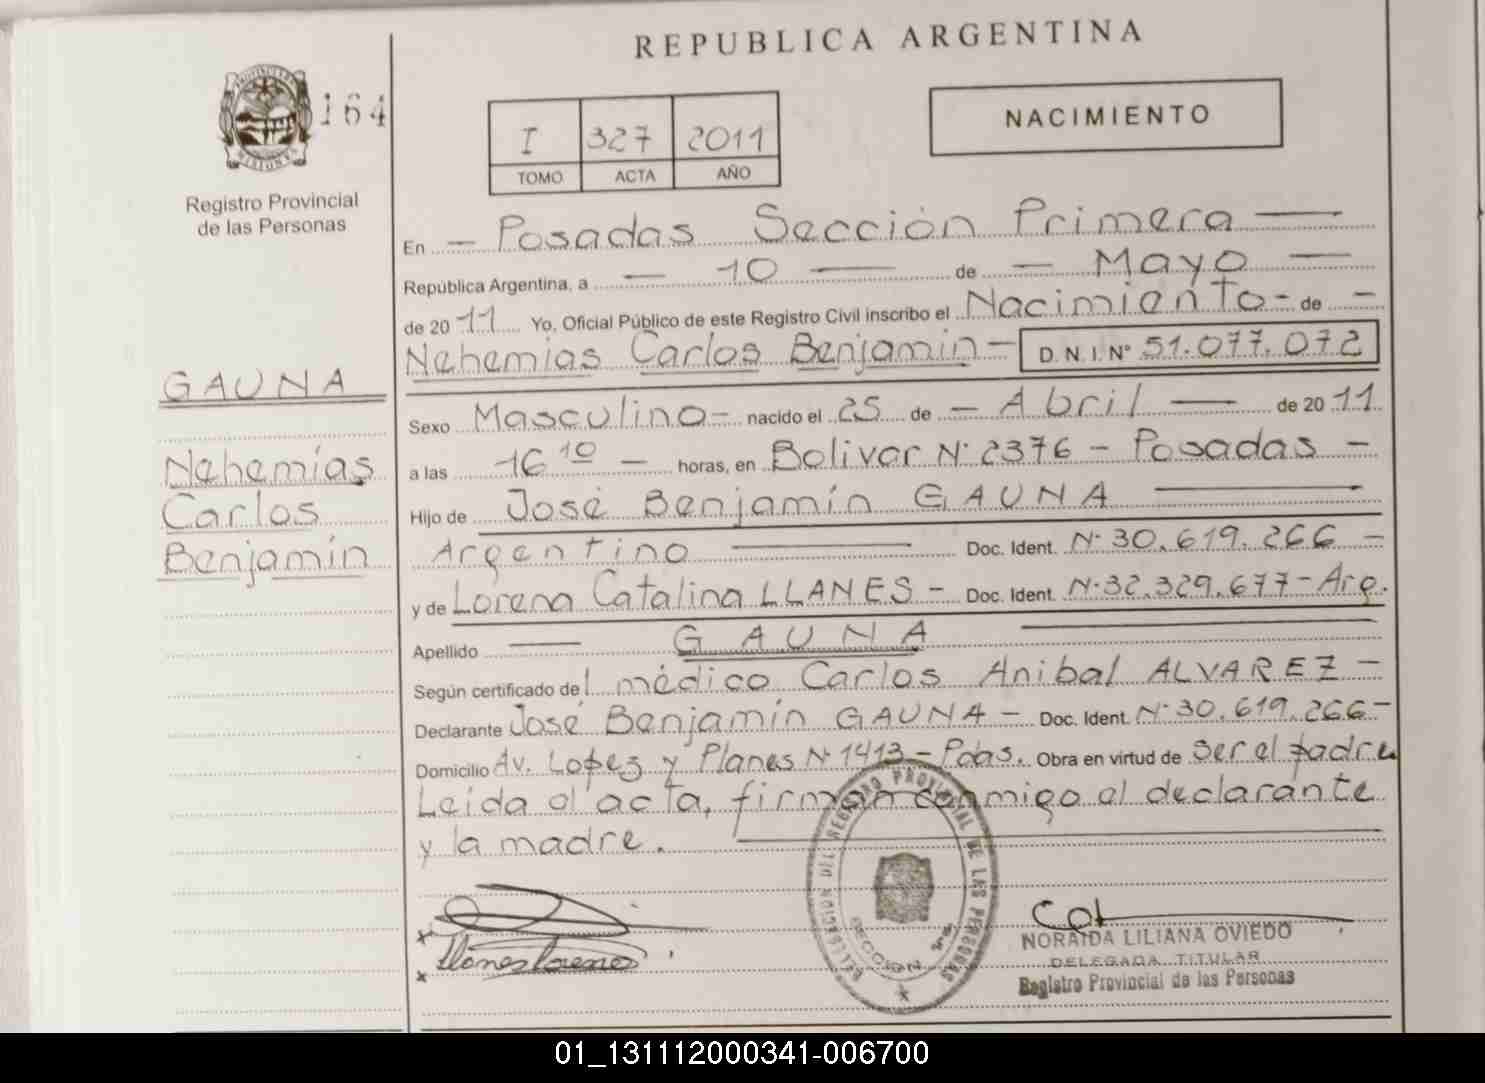 REPUBLICA ARGENTINA
164
I 327 2011
TOMO ACTA AÑO
NACIMIENTO
MISIONES
Registro Provincial
de las Personas
En - Posadas Sección Primera -
República Argentina, a - 10 - de - Mayo -
de 20 11 Yo, Oficial Público de este Registro Civil inscribo el Nacimiento - de -
Nehemías Carlos Benjamín - D. N. I. Nº 51.077.072
GAUNA
Nehemías
Carlos
Benjamín
Sexo Masculino - nacido el 25 de - Abril - de 20 11
a las 16 10 - horas, en Bolivar Nº 2376 - Posadas -
Hijo de José Benjamín GAUNA -
Argentino - Doc. Ident. Nº 30.619.266 -
y de Lorena Catalina LLANES - Doc. Ident. Nº 32.329.677 - Arg.
Apellido - GAUNA -
Según certificado del médico Carlos Anibal ALVAREZ -
Declarante José Benjamín GAUNA - Doc. Ident. Nº 30.619.266 -
Domicilio Av. Lopez y Planes Nº 1413 - Pdas. Obra en virtud de ser el padre
Leída el acta, firman conmigo el declarante
y la madre.
DELEGACION DEL REGISTRO PROVINCIAL DE LAS PERSONAS
Llanes Lorena
NORAIDA LILIANA OVIEDO
DELEGADA TITULAR
Registro Provincial de las Personas
01_131112000341-006700